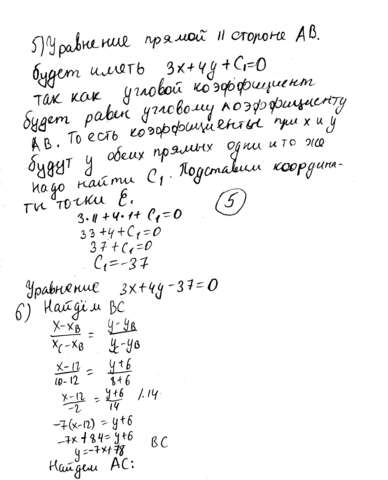 5) Уравнение прямой || стороне AB.
будет иметь 3x+4y+C₁=0
так как угловой коэффициент
будет равен угловому коэффициенту
AB. То есть коэффициенты при x и y
будут у обеих прямых одни и то же
надо найти C₁. Подставим координа-
ты точки E.
3·11+4·1+C₁=0
33+4+C₁=0
37+C₁=0
C₁=-37
5
Уравнение 3x+4y-37=0
6) Найдём BC
(x-x_B)/(x_C-x_B) = (y-y_B)/(y_C-y_B)
(x-12)/(10-12) = (y+6)/(8+6)
(x-12)/(-2) = (y+6)/14 /·14
-7(x-12)=y+6
-7x+84=y+6
y=-7x+78 BC
Найдем AC: